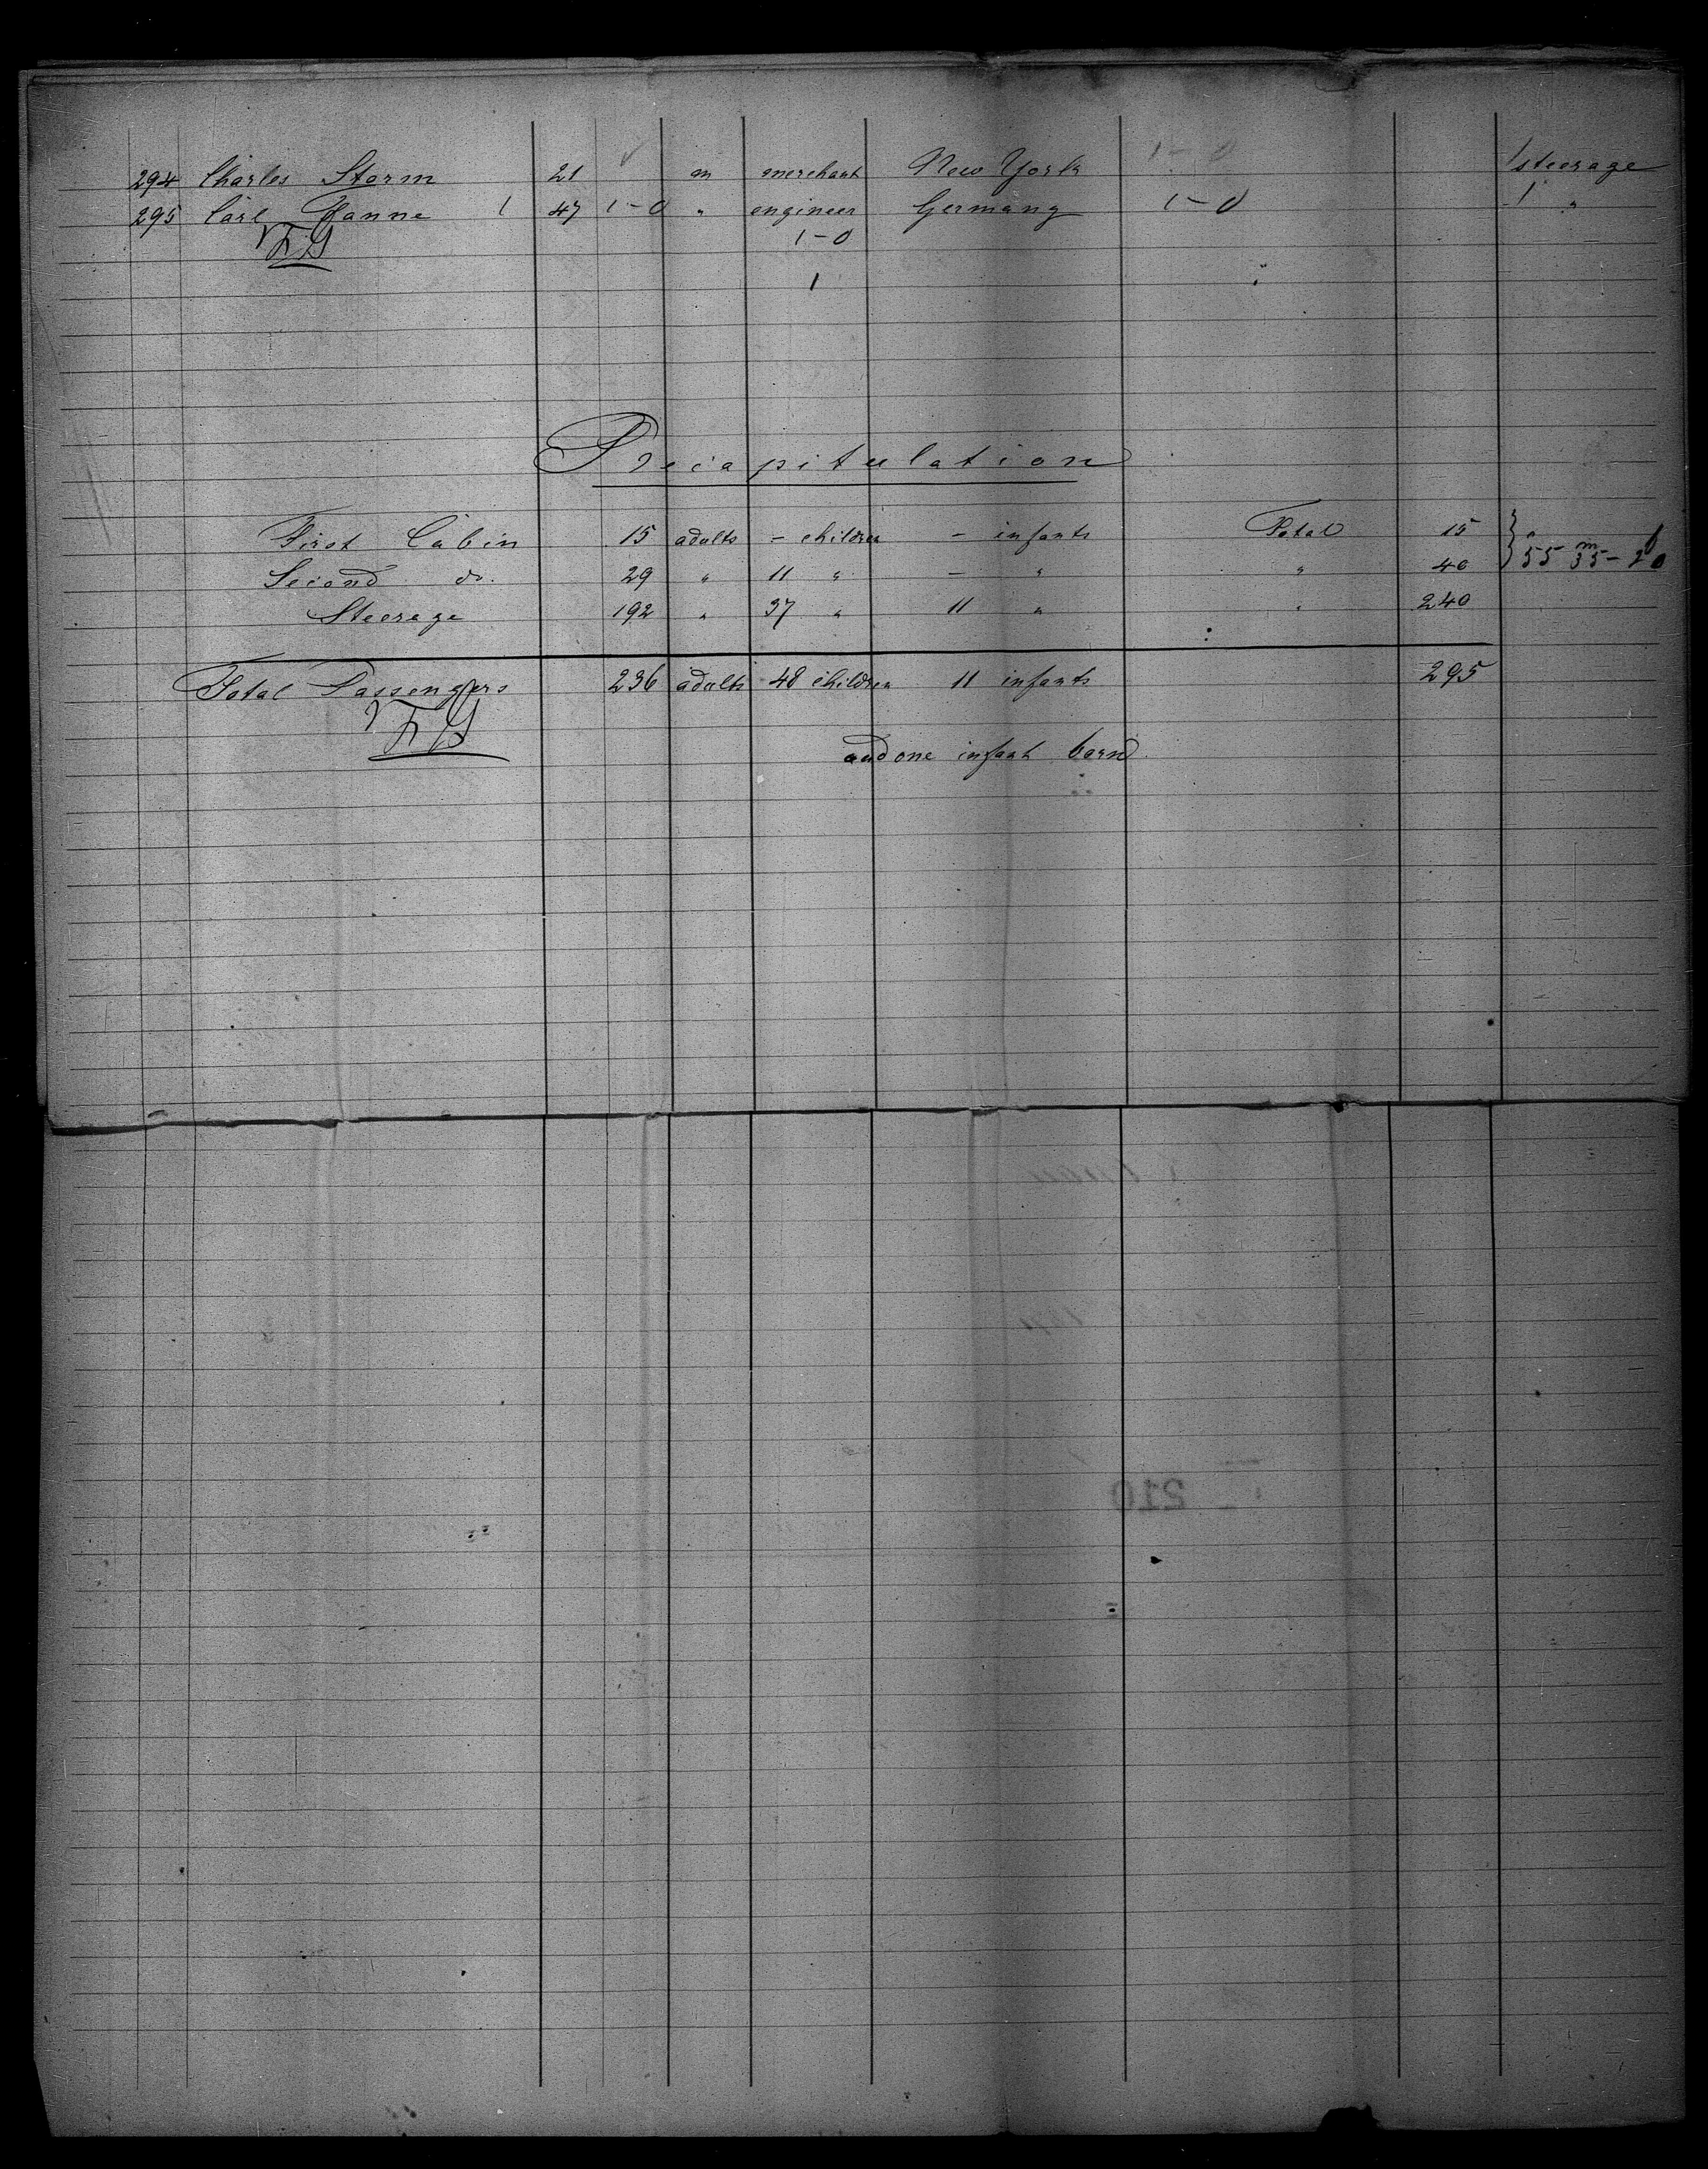 294 Charles Storm 21 m merchant New York 1-0 1 steerage
295 Carl Hanne 1 47 1-0 " engineer Germany 1-0 1 "
1-0
1
Recapitulation
First Cabin 15 adults - children - infants Total 15
Second do. 29 " 11 " - " " 40 } 55 m 35 - f 20
Steerage 192 " 37 " 11 " " 240
Total Passengers 236 adults 48 children 11 infants 295
and one infant born
210